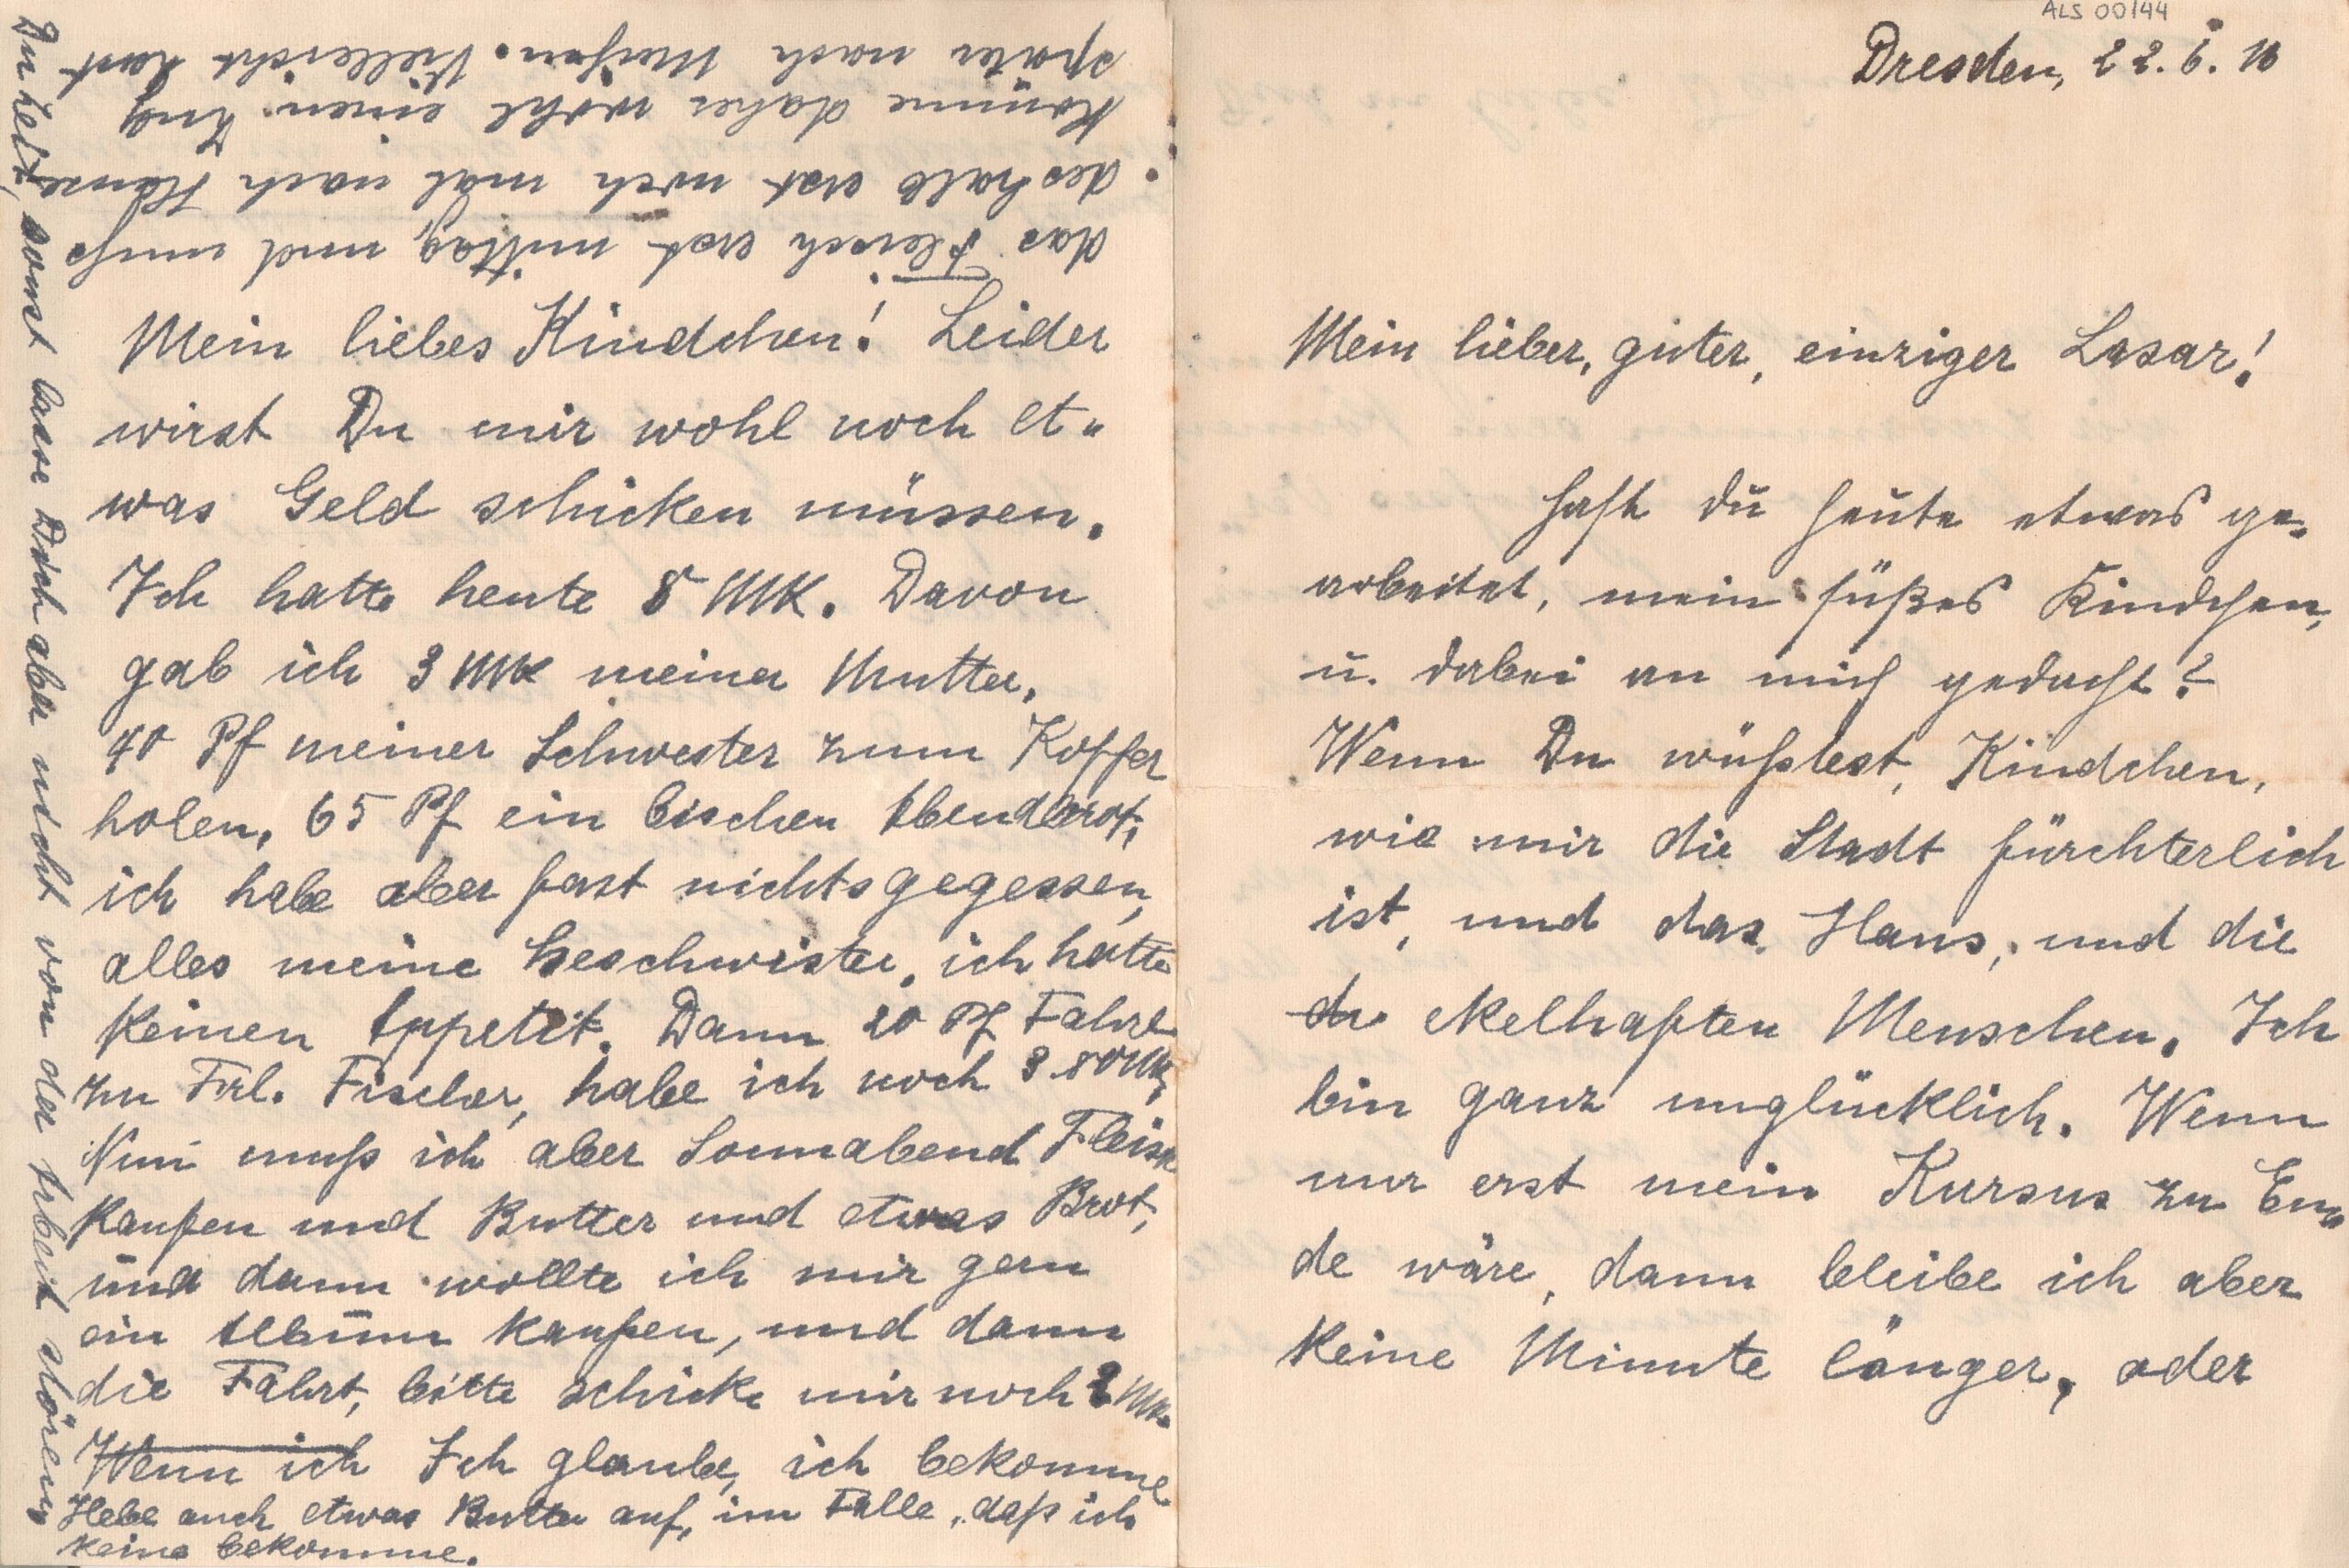 ALS 00/44
Dresden, 22. 6. 18
Mein lieber, guter, einziger Lasar!
Hast du heute etwas ge-
arbeitet, mein süßes Kindchen,
u. dabei an mich gedacht?
Wenn Du wüßtest, Kindchen,
wie mir die Stadt fürchterlich
ist, und das Haus, und die
ekelhaften Menschen. Ich
bin ganz unglücklich. Wenn
nur erst mein Kursus zu En-
de wäre, dann bleibe ich aber
keine Minute länger, oder
Mein liebes Kindchen! Leider
wirst Du mir wohl noch et-
was Geld schicken müssen.
Ich hatte heute 8 MK. Davon
gab ich 3 MK meiner Mutter,
40 Pf meiner Schwester zum Koffer
holen, 65 Pf ein bischen Abendbrot,
ich habe aber fast nichts gegessen,
alles meine Geschwister, ich hatte
keinen Appetit. Dann 20 Pf Fahrt
zu Frl. Fischer, habe ich noch 3.80 MK,
Nun muß ich aber Sonnabend Fleisch
kaufen und Butter und etwas Brot,
und dann wollte ich mir gern
ein Album kaufen, und dann
die Fahrt, bitte schicke mir noch MK.
Wenn ich Ich glaube, ich bekomme
das Fleisch erst mittag und muß
deshalb erst noch mal nach Hause,
komme daher wohl einen Zug
später nach Meißen. Vielleicht hast
Du Zeit, sonst lasse Dich aber nicht von der Arbeit stören.
Hebe auch etwas Butter auf, im Falle, daß ich
keine bekomme.